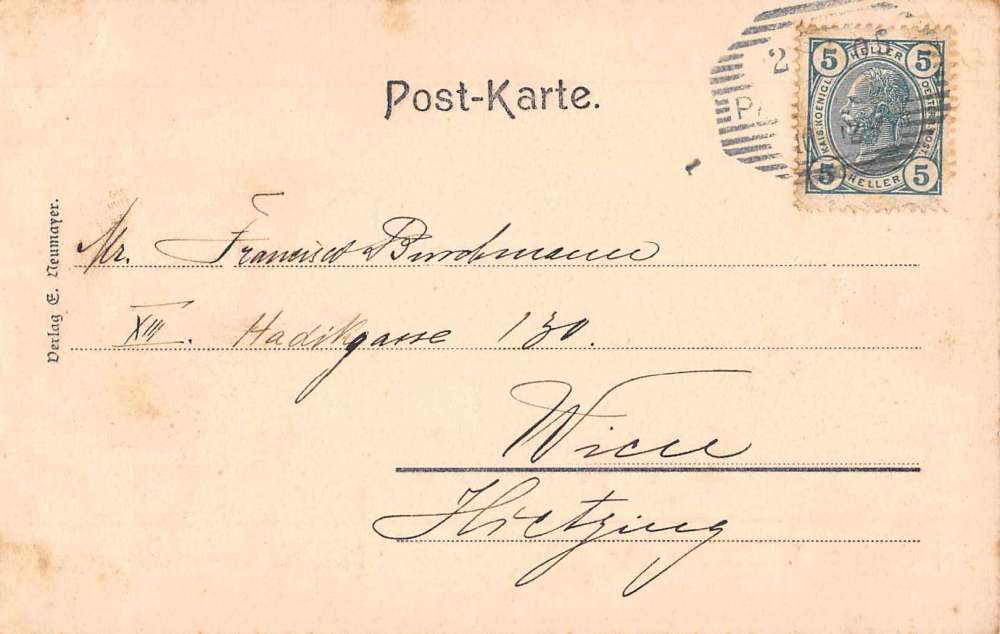 Post-Karte.
5 HELLER 5
KAIS. KOENIGL.
OESTERR. POST.
5 HELLER 5
2
Verlag E. Neumayer.
Mr.
XIII. Hadikgasse 130.
Wien
Hietzing